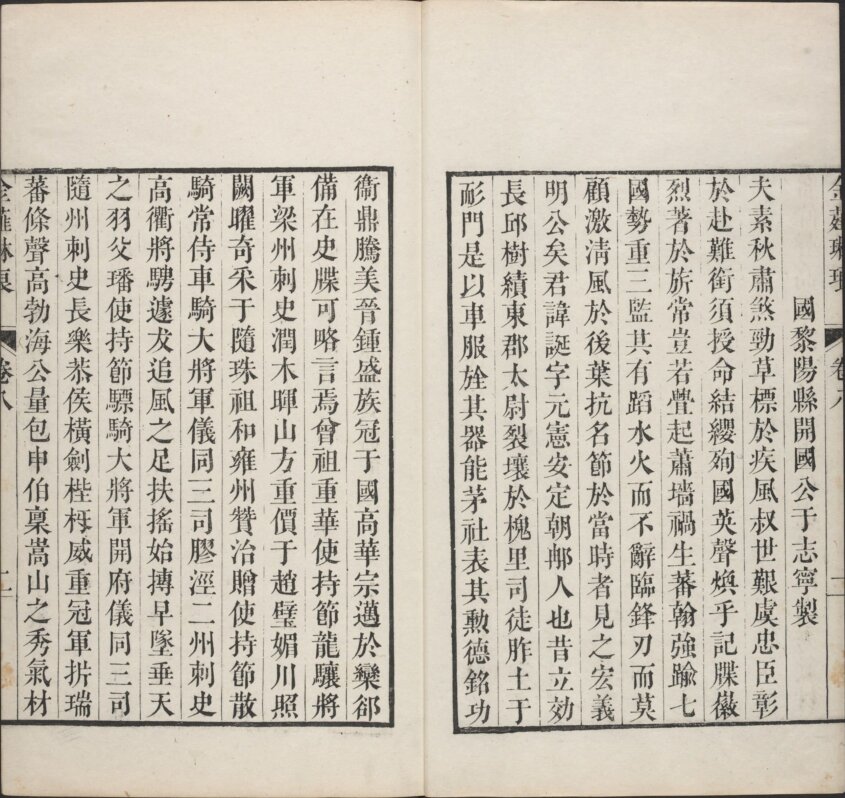 國黎陽縣開國公于志寧製
夫素秋肅煞勁草標於疾風叔世艱虞忠臣彰
於赴難銜須授命結纓殉國英聲煥乎記牒徽
烈著於旂常豈若舋起蕭墻禍生蕃翰強踰七
國勢重三監其有蹈水火而不辭臨鋒刃而莫
顧激清風於後葉抗名節於當時者見之宏義
明公矣君諱誕字元憲安定朝𨙻人也昔立効
長邱樹績東郡太尉裂壤於槐里司徒胙土于
耏門是以車服旌其器能茅社表其勲德銘功
衞鼎騰美晉鍾盛族冠于國高華宗邁於欒郤
備在史牒可略言焉曾祖重華使持節龍驤將
軍梁州刺史潤木暉山方重價于趙璧媚川照
闕曜奇采于隨珠祖和雍州贊治贈使持節散
騎常侍車騎大將軍儀同三司膠涇二州刺史
高衢將騁遽犮追風之足扶搖始摶早墜垂天
之羽父璠使持節驃騎大將軍開府儀同三司
隨州刺史長樂恭侯橫劍梐枑威重冠軍析瑞
蕃條聲高勃海公量包申伯稟嵩山之秀氣材
金薤琳琅 卷八 二